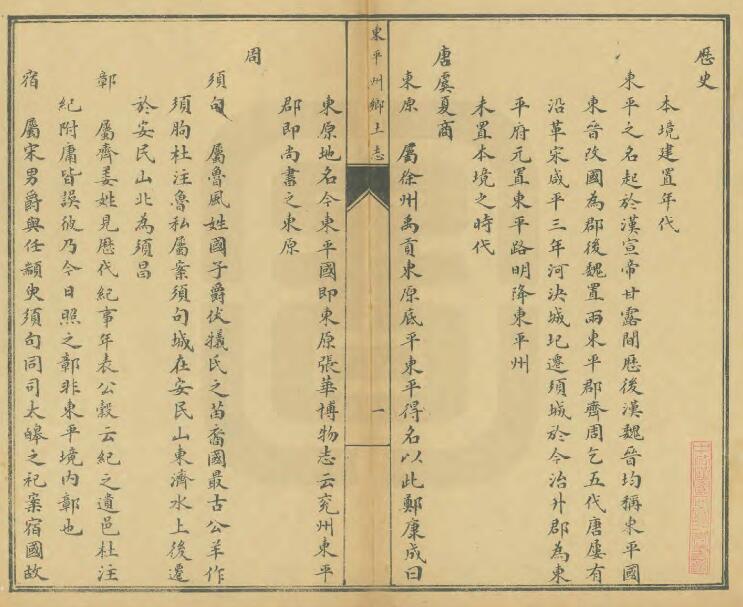 歷史
本境建置年代
東平之名起於漢宣帝甘露間歷後漢魏晉均稱東平國
東晉改國為郡後魏置兩東平郡齊周乞五代唐屢有
沿革宋咸平三年河決城圮遷須城於今治升郡為東
平府元置東平路明降東平州
未置本境之時代
唐虞夏商
東原 屬徐州禹貢東原底平東平得名以此鄭康成曰
東平州鄉土志
一
東原地名今東平國即東原張華博物志云兖州東平
郡即尚書之東原
周
須句 屬魯風姓國子爵伏犠氏之苗裔國最古公羊作
須朐杜注魯私屬案須句城在安民山東濟水上後遷
於安民山北為須昌
鄣 屬齊姜姓見歷代紀事年表公穀云紀之遺邑杜注
紀附庸皆誤彼乃今日照之鄣非東平境內鄣也
宿 屬宋男爵與任顓臾須句同司太皞之祀案宿國故